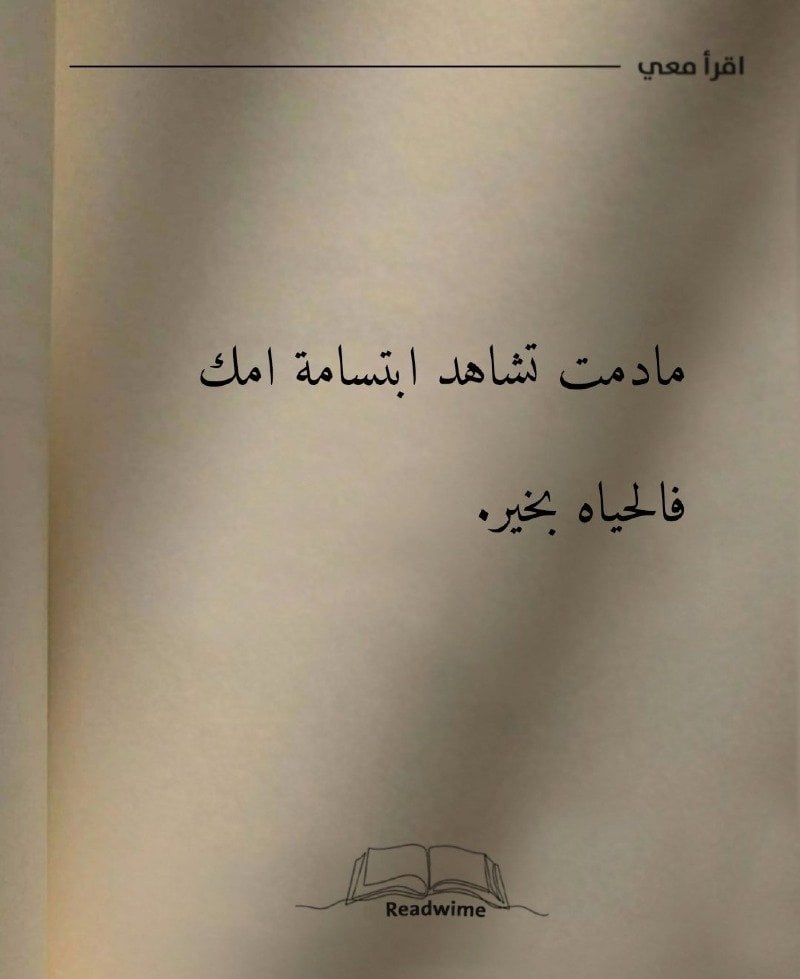 اقرأ معي
مادمت تشاهد ابتسامة امك
فالحياه بخير.
Readwime